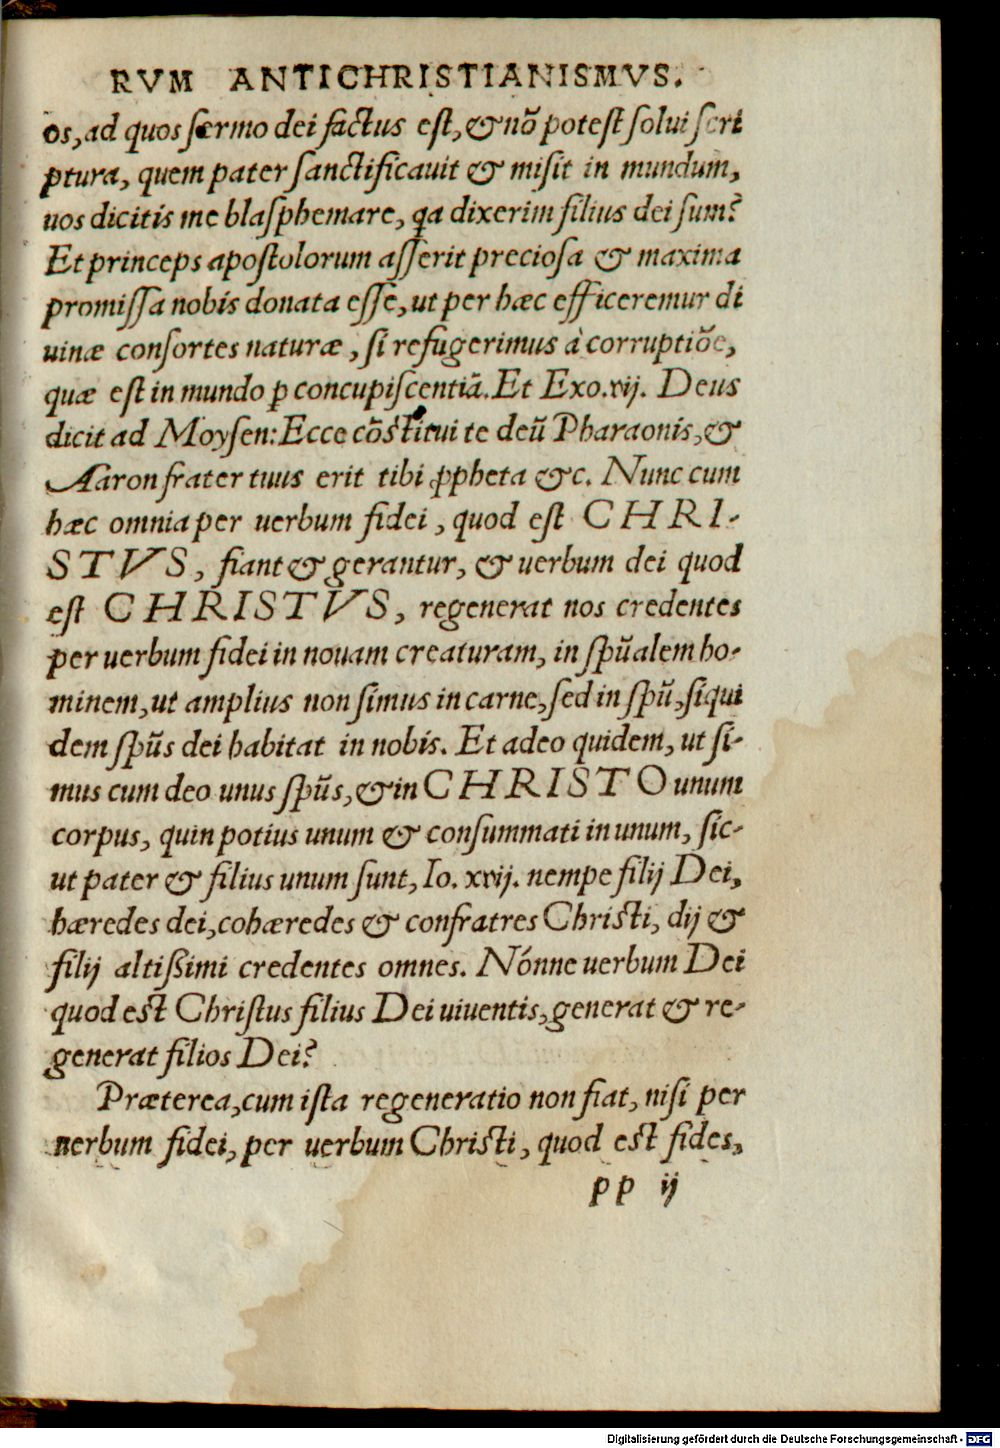 RVM ANTICHRISTIANISMVS.
os, ad quos sermo dei factus est, & nõ potest solui scri
ptura, quem pater sanctificauit & misit in mundum,
uos dicitis me blasphemare, qa dixerim filius dei sum?
Et princeps apostolorum asserit preciosa & maxima
promissa nobis donata esse, ut per hæc efficeremur di
uinæ consortes naturæ, si refugerimus à corruptiõe,
quæ est in mundo ꝑ concupiscentiã. Et Exo. vij. Deus
dicit ad Moysen: Ecce cõstitui te deũ Pharaonis, &
Aaron frater tuus erit tibi ꝓpheta &c. Nunc cum
hæc omnia per uerbum fidei, quod est CHRI-
STVS, fiant & gerantur, & uerbum dei quod
est CHRISTVS, regenerat nos credentes
per uerbum fidei in nouam creaturam, in spũalem ho-
minem, ut amplius non simus in carne, sed in spũ, siqui
dem spũs dei habitat in nobis. Et adeo quidem, ut si-
mus cum deo unus spũs, & in CHRISTO unum
corpus, quin potius unum & consummati in unum, sic-
ut pater & filius unum sunt, Io. xvij. nempe filij Dei,
hæredes dei, cohæredes & confratres Christi, dij &
filij altißimi credentes omnes. Nónne uerbum Dei
quod est Christus filius Dei uiuentis, generat & re-
generat filios Dei?
Præterea, cum ista regeneratio non fiat, nisi per
uerbum fidei, per uerbum Christi, quod est fides,
pp ij
Digitalisierung gefördert durch die Deutsche Forschungsgemeinschaft - DFG